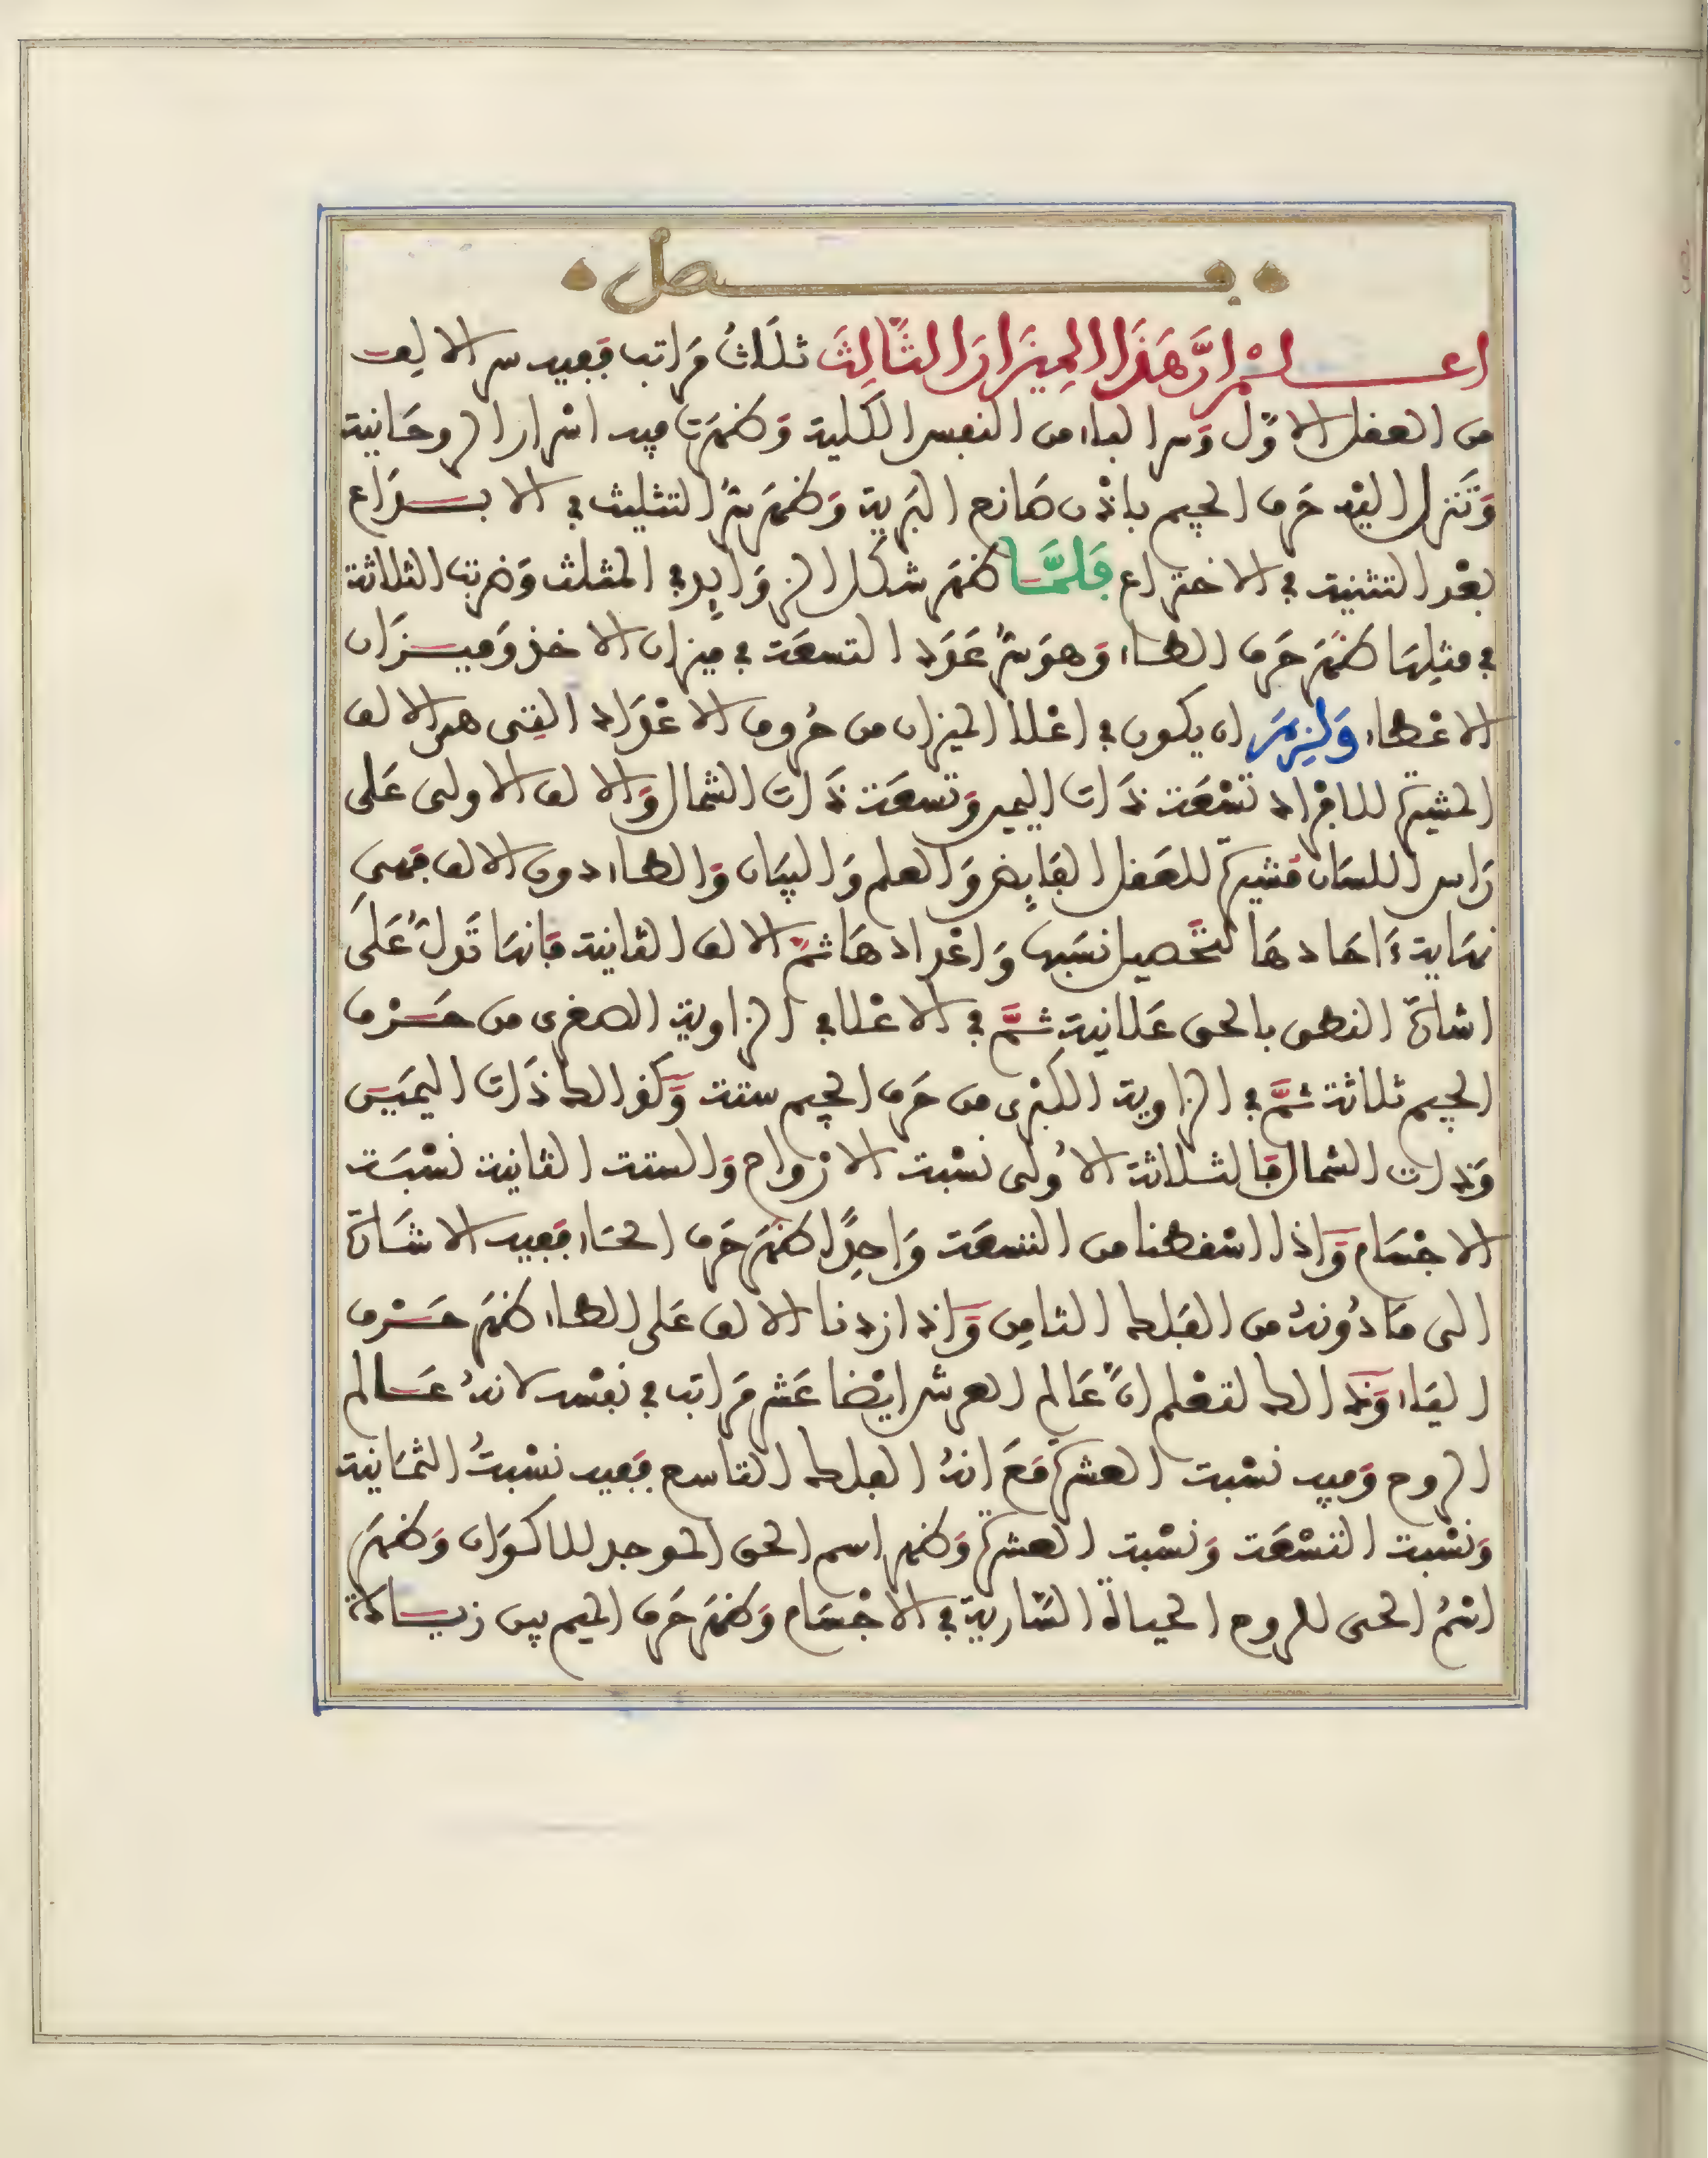 فصل
اعلم ان هذا الميزان الثالث ثلاث مراتب ففيه سر الالف
من العقل الاول وسر الباء من النفس الكلية وظهرت فيه اسرار الروحانية
وتنزل اليه حرف الجيم باذن صانع البرية وظهر سر التثليث في الابداع
بعد التثنية في الاختراع فلما ظهر شكل الزوايد في المثلث وضربت الثلاثة
في مثلها ظهر حرف الطاء وهو سر عدد التسعة في ميزان الاخذ وميزان
الاعطاء ولزم ان يكون في اعلا الميزان من حروف الاعداد التى هى الالف
المشيرة للافراد تسعة ذات اليمين وتسعة ذات الشمال والالف الاولى على
راس اللسان مشيرة للعقل الفايض والعلم والبيان والطاء دون الالف فهى
نهاية ءاحادها لتحصيل نسبها واعدادها ثم الالف الثانية فانها تدل على
اشارة النطق بالحق علانية ثم في الاعلا في الزاوية الصغرى من حرف
الجيم ثلاثة ثم في الزاوية الكبرى من حرف الجيم ستة وكذالك ذات اليمين
وذات الشمال فالثلاثة الاولى نسبة الازواج والستة الثانية نسبة
الاجسام واذا اسقطنا من التسعة واحدا ظهر حرف الحاء ففيه الاشارة
الى ما دونه من الفلك الثامن واذا زدنا الالف على الطاء ظهر حرف
الياء وذالك لتعلم ان عالم العرش ايضا عشر مراتب في نفسه لانه عالم
الروح وفيه نسبة العشرة مع انه الفلك التاسع ففيه نسبة الثمانية
ونسبة التسعة ونسبة العشرة وظهر اسم الحق الموجد للاكوان وظهر
اسم الحى للروح الحياة السارية في الاجسام وظهر حرف الميم بين زيادة